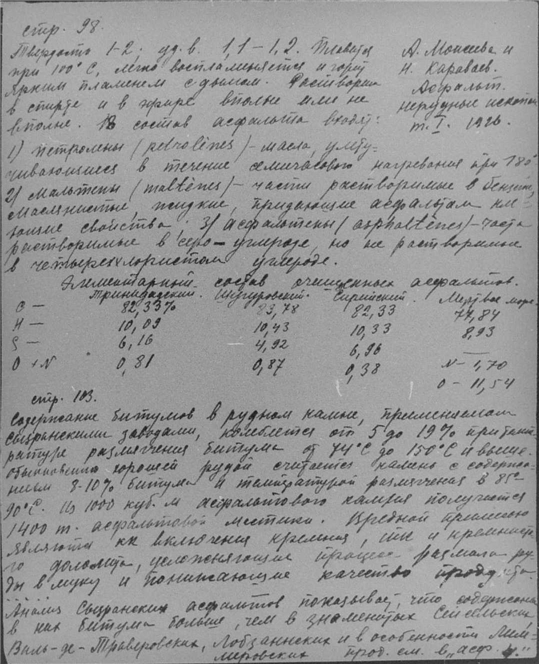 стр. 98.
Твердость 1-2; уд. в. 1,1 – 1,2. Плавятся
А. Моисеева и
при 100° С, легко воспламеняется и горит
Н. Караваев.
ярким пламенем с дымом. Растворим
Асфальт.
в спирте и в эфире вполне или не
нерудные ископ.
вполне. В состав асфальта входят:
т. I. 1926.
1) петролены (petrolènes) – масла, улету-
чивающиеся в течение семичасового нагревания при 180°
2) мальтены (maltènes) – части растворимые в бензине,
маслянистые жидкие, придающие асфальтам
свойства. 3) асфальтены (asphaltènes) – части
растворимые в серо-углероде, но не растворимые
в четыреххлористом углероде.
Элементарный состав очищенных асфальтов.
Тринидадский. Шугуровский. Сирийский. Мертвое море.
C – 82,33% 83,78 82,33 77,84
H – 10,09 10,43 10,33 8,93
S – 6,16 4,92 6,96 —
O + N 0,81 0,87 0,38 N – 1,70
O – 11,54
стр. 103.
Содержание битумов в рудном камне, применяемом
сызранскими заводами, колеблется от 5 до 19% при темпе-
ратуре размягчения битума от 74°С до 150°С и выше.
Обыкновенно хорошей рудой считается камень с содержа-
нием 8-10% битума и температурой размягчения в 85-
90°С. Из 1000 куб. м асфальтового камня получается
1400 т. асфальтовой мастики. Вредной примесью
являются включения кремния, и кремнисто-
го доломита, усложняющие процесс размола ру-
ды в муку и понижающие качество продукта.
Анализ сызранских асфальтов показывает, что содержание
в них битума больше, чем в знаменитых Сейсельских,
Валь-де-Траверовских, Лобзаннских и в особенности Лим-
меровских прод. см. в „асф.